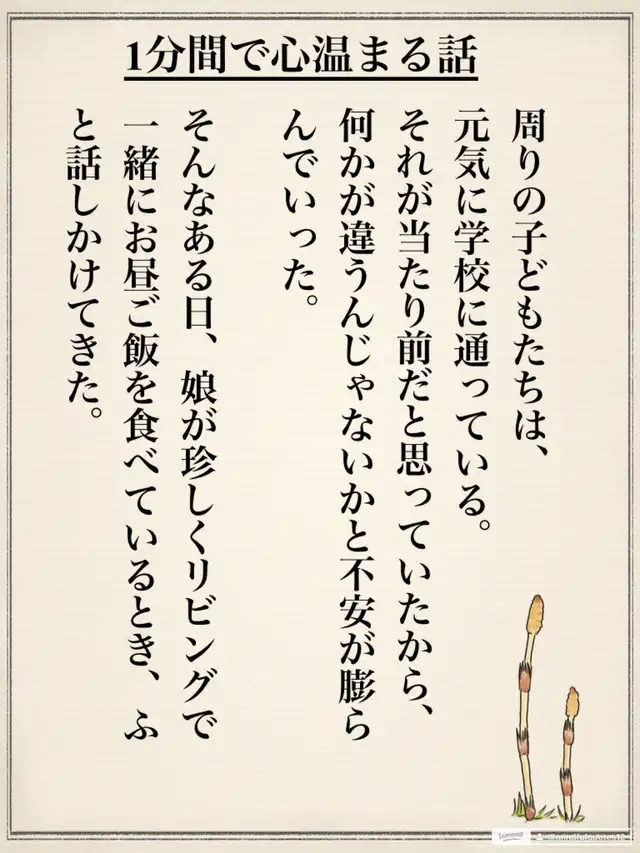 1分間で心温まる話
周りの子どもたちは、
元気に学校に通っている。
それが当たり前だと思っていたから、
何かが違うんじゃないかと不安が膨ら
んでいった。
そんなある日、娘が珍しくリビングで
一緒にお昼ご飯を食べているとき、ふ
と話しかけてきた。